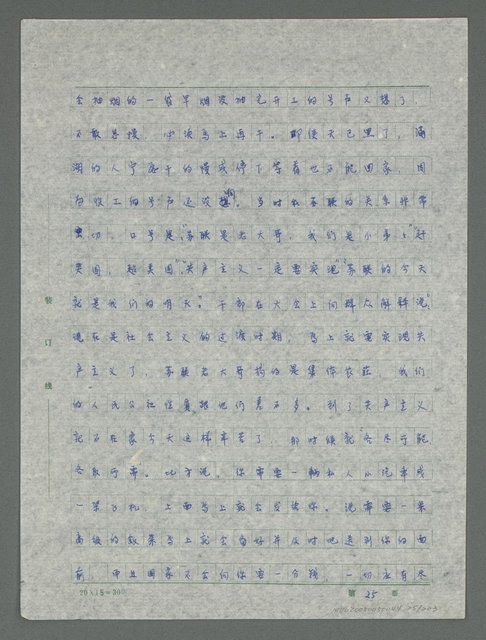 会抽烟的一袋旱烟没抽完开工的号声又想了,
不敢怠慢 听后马上再干。即使天已黑了,满
湖的人宁愿干的慢或停下等着也不能回家,因
为收工的号声还没想响。当时和苏联的关系非常
密切,口号是:“苏联是老大哥,我们是小弟”“赶
英国,超美国”“共产主义一定要实现”“苏联的今天
就是我们的明天”。干部在大会上向群众解释说:
现在是社会主义的过渡时期,马上就要实现共
产主义了,苏联老大哥搞的是集体农庄,我们
的人民公社性质跟他们差不多。到了共产主义
就不在象今天这样辛苦了,那时候就“各尽所能
各取所需”。比方说,你需要一辆私人小汽车或
一架飞机,上面马上就会发给你。说需要一桌
高级的饭菜马上就会备好并及时地送到你的面
前,而且国家不会向你要一分钱,一切应有尽
装
订
线
20×15=300
第 25 页